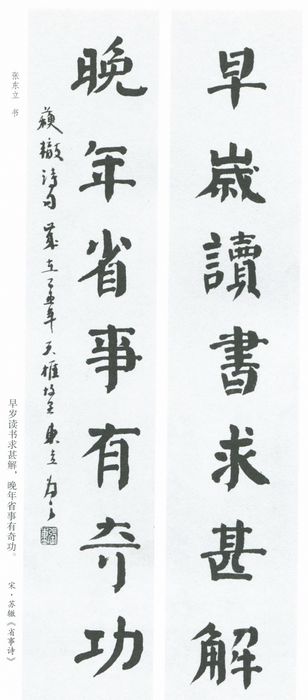 早歲讀書求甚解
晚年省事有奇功
蘇轍詩句
东立
张东立 书
早岁读书求甚解，晚年省事有奇功。
宋·苏辙《省事诗》